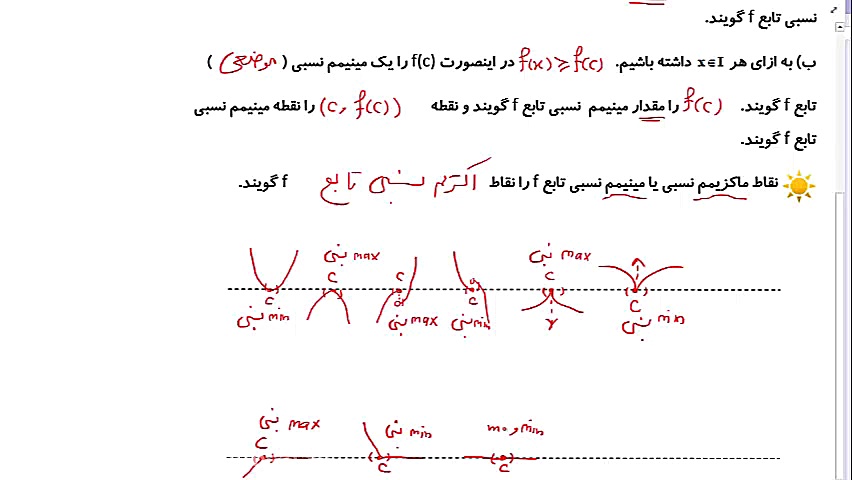 نسبی تابع f گویند.
ب) به ازای هر x∈I داشته باشیم. f(x) ≥ f(c) در اینصورت f(c) را یک مینیمم نسبی ( موضعی )
تابع f گویند. f(c) را مقدار مینیمم نسبی تابع f گویند و نقطه (c, f(c)) را نقطه مینیمم نسبی
تابع f گویند.
نقاط ماکزیمم نسبی یا مینیمم نسبی تابع f را نقاط اکسترمم نسبی تابع f گویند.
c
min نسبی
max نسبی
c
c
max نسبی
c
min نسبی
max نسبی
c
c
min نسبی
max نسبی
c
min نسبی
c
min و max
c